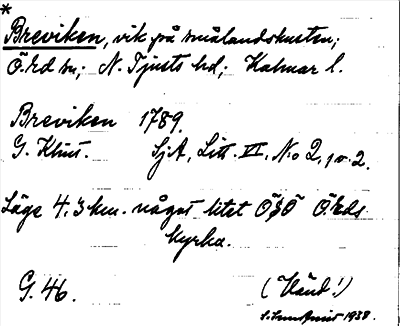 *
Breviken, vik på smålandskusten;
Ö. Ed sn; N. Tjusts hd; Kalmar l.
Breviken 1789.
G. Klint. SjA, Litt. VI, No 2, 1 v. 2.
Läge 4.3 km. något litet ÖSÖ Ö. Eds
kyrka.
G. 46. (Vänd!)
1938.